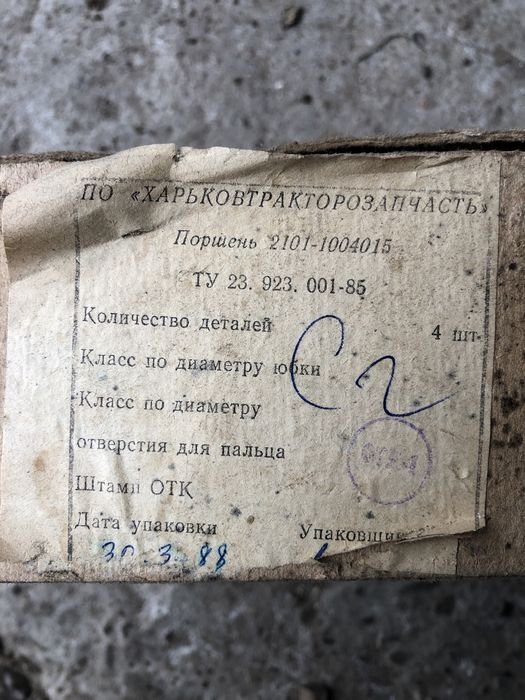 ПО «ХАРЬКОВТРАКТОРОЗАПЧАСТЬ»
Поршень 2101-1004015
ТУ 23. 923. 001-85
Количество деталей 4 шт.
Класс по диаметру юбки С2
Класс по диаметру
отверстия для пальца
Штамп ОТК
Дата упаковки Упаковщик
30.3.88